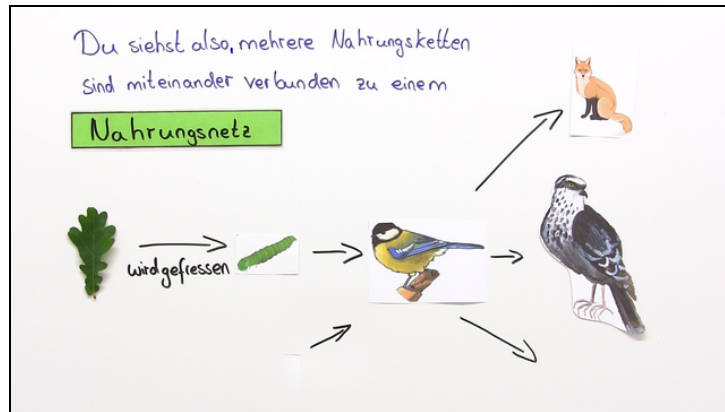 Du siehst also, mehrere Nahrungsketten
sind miteinander verbunden zu einem
Nahrungsnetz
wird gefressen